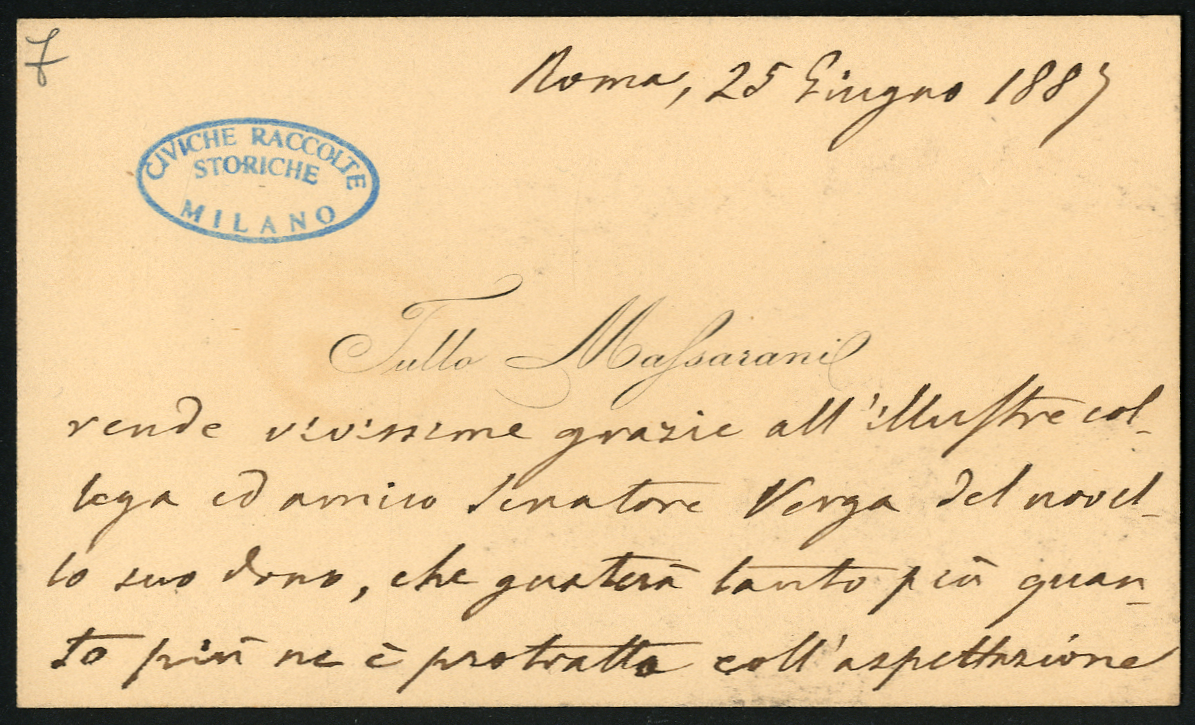 7
Roma, 25 Giugno 1887
CIVICHE RACCOLTE
STORICHE
MILANO
Tullo Massarani
rende vivissime grazie all'illustre col-
lega ed amico Senatore Verga del novel-
lo suo dono, che gusterà tanto più quan-
to più ne è protratta coll'aspettazione